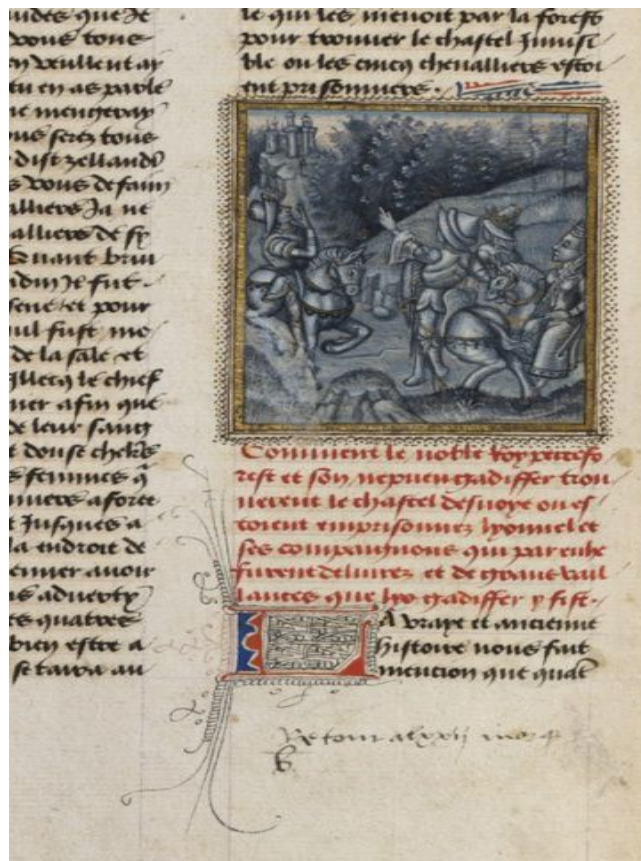 udes que Je
vous tous
en veullent ay
tu en as parle
ne mengeray
ous serez tous
dist zellandi
s vous de faim
alliers Ja ne
alliers de sy
uant briu
adm Il fut
sent et pour
ul fust mo
de la sale et
illecq le chief
uer afin que
de leur sang
t douse chlrs
s femmes q
niers a foret
t Jusques a
la endroit de
enner auoir
us aduerty
es quatres
bien estre a
se tawa au
le qui les menoit par la forest
pour trouuer le chastel Inuisi
ble ou les cincq cheualliers estoi
ent prisonniers .
Comment le noble roy perrefo
rest et son nepueu gadiffer trou
uerent le chastel desuoye ou es
toient emprisonnez lyonnel et
ses compaignons qui par eulx
furent deliurez et de grant vail
lances que lyo gadiffer y fist .
LA vraye et ancienne
histoire nous fait
mencion que quat
Retour al xxij